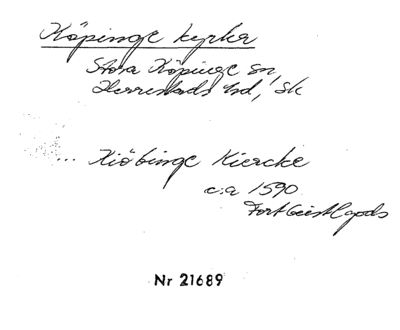 Köpinge kyrka
Stora Köpinge sn,
Herrestads hd, Sk
... Kiöbinge Kiercke
c:a 1590
Fort Geistl gods
Nr 21689